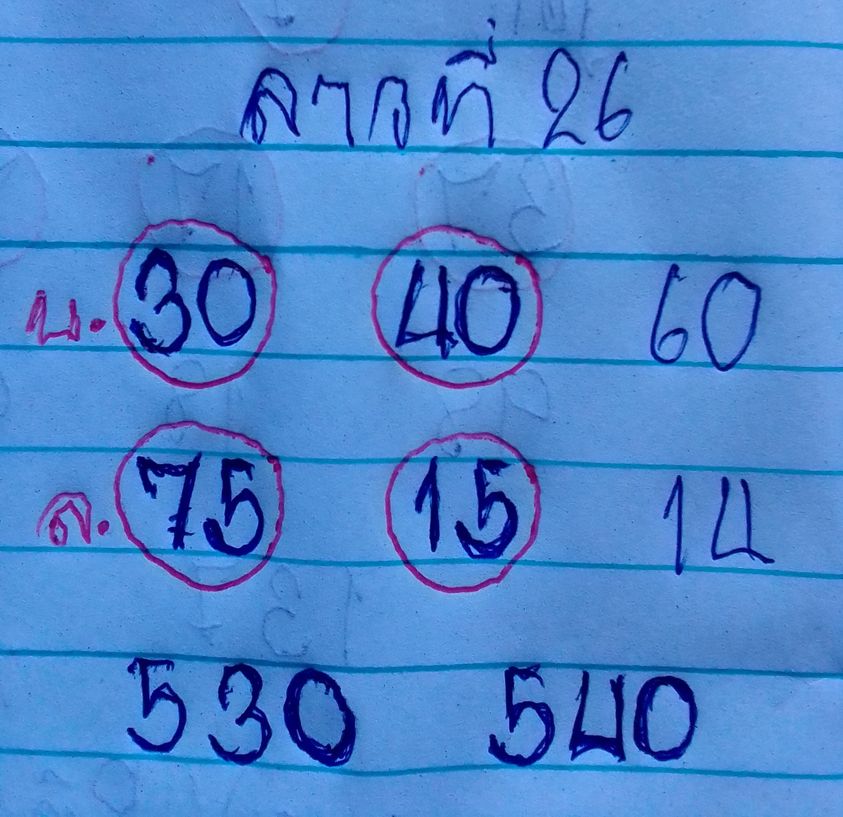 ลาวที่ 26
บ. 30 40 60
ล. 75 15 14
530 540